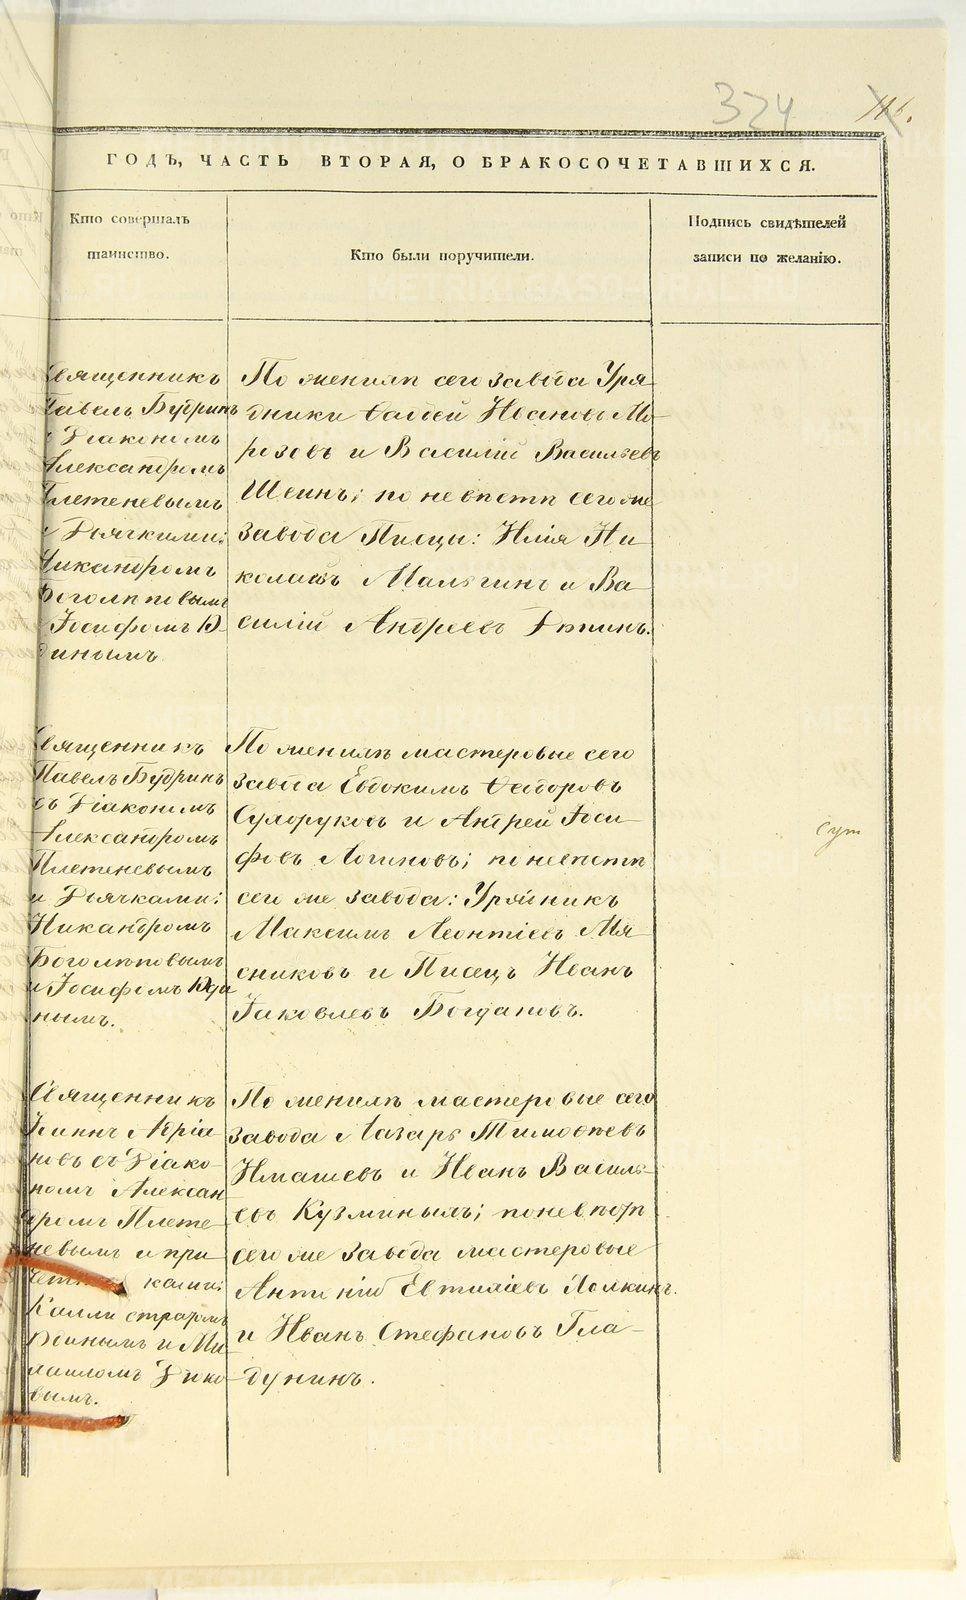 324
116.
ГОДЪ, ЧАСТЬ ВТОРАЯ, О БРАКОСОЧЕТАВШИХСЯ.
Кто совершалъ
таинство.
Кто были поручители.
Подпись свидѣтелей
записи по желанію.
Священникъ
Павелъ Будринъ
с Діакономъ
Александромъ
Плетеневымъ
и Дьячками:
Никандромъ
Боголѣповымъ
и Іосифомъ Ю-
динымъ
По женихѣ сего завода Уря-
дники Фаддей Ивановъ Мо-
розовъ и Василій Васильевъ
Шеинъ; по невѣстѣ сего же
завода Писцы: Илія Ни-
колаевъ Мальгинъ и Ва-
силій Андреевъ
Священникъ
Павелъ Будринъ
съ Діакономъ
Александромъ
Плетеневымъ
и Дьячками:
Никандромъ
Боголѣповымъ
и Іосифомъ Юди
нымъ.
По женихѣ мастеровые сего
завода Евдокимъ Ѳедоровъ
Сухоруковъ и Андрей Іоси-
фовъ Логиновъ; по невѣстѣ
сего же завода: Урядникъ
Максимъ Леонтіевъ Мя-
сниковъ и Писецъ Иванъ
Іаковлевъ Богдановъ.
Священникъ
Іоаннъ Адріа-
новъ съ Діако-
номъ Алексан
дромъ Плете-
невымъ и при
четниками:
Каллистратомъ
и Ми
хаиломъ Дико
вымъ.
По женихѣ мастеровые сего
завода Лазарь Тимоѳеевъ
Имашевъ и Иванъ Василь-
евъ Кузминымъ; по невѣстѣ
сего же завода мастеровые
Антоній Евтихіевъ
и Иванъ Стефановъ Гла-
дунинъ.
METRIKI.GASO-URAL.RU